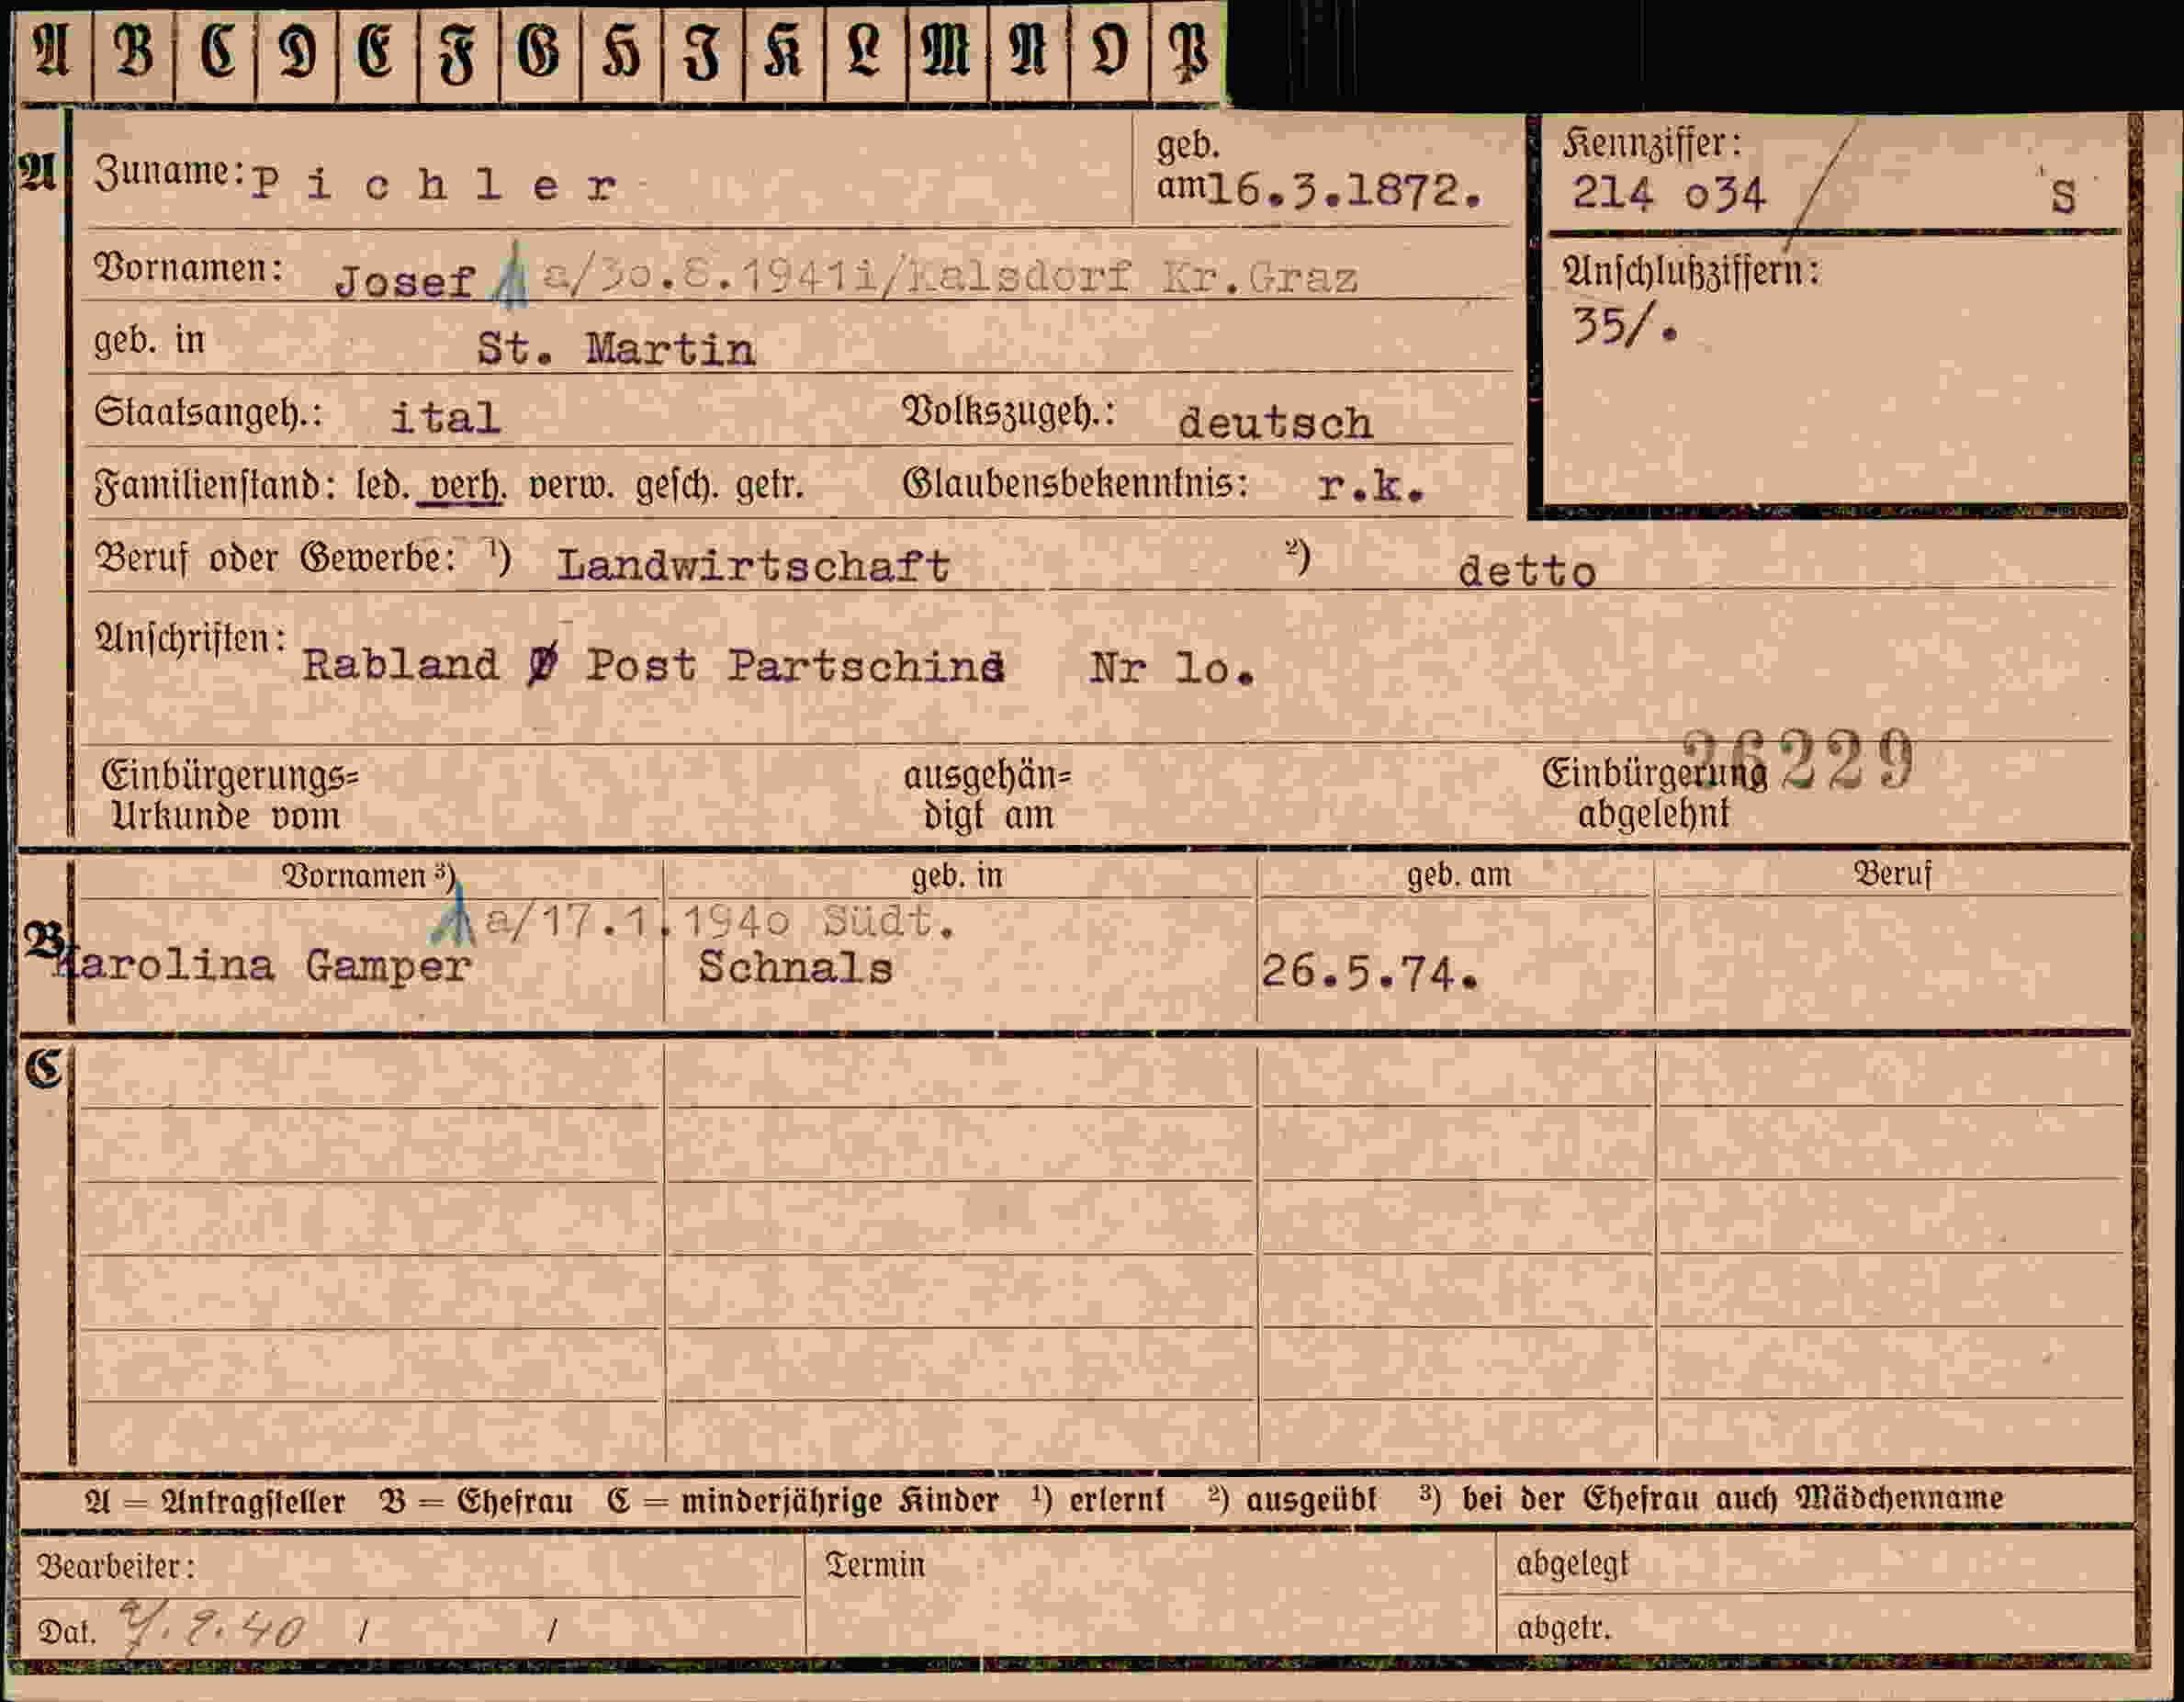 A B C D E F G H I K L M N O P
A Zuname: Pichler geb. am 16.3.1872. Kennziffer: 214 o34 / S
Vornamen: Josef a/3o.8.1941i/Kalsdorf Kr.Graz Anschlußziffern:
35/.
geb. in St. Martin
Staatsangeh.: ital Volkszugeh.: deutsch
Familienstand: led. verh. verw. gesch. getr. Glaubensbekenntnis: r.k.
Beruf oder Gewerbe: ¹) Landwirtschaft ²) detto
Anschriften: Rabland Post Partschins Nr lo.
26229
Einbürgerungs= ausgehän= Einbürgerung
Urkunde vom digt am abgelehnt
Vornamen ³) geb. in geb. am Beruf
a/17.1.194o Südt.
B Karolina Gamper Schnals 26.5.74.
C
A = Antragsteller B = Ehefrau C = minderjährige Kinder ¹) erlernt ²) ausgeübt ³) bei der Ehefrau auch Mädchenname
Bearbeiter: Termin abgelegt
Dat. / / abgetr.